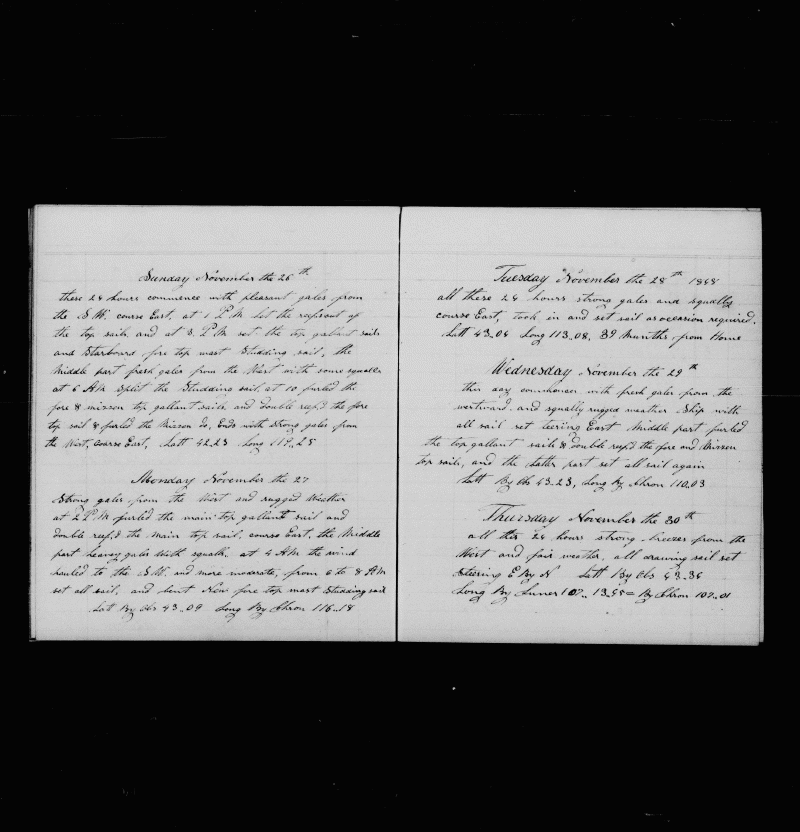 Sunday November the 26th
these 24 hours commence with pleasant gales from
the S.W. course East, at 1 P.M let the reefs out of
the top sails and at 3 P.M set the top gallant sails
and Starboard fore top mast Studding sail, the
Middle part fresh gales from the West with some squalls
at 6 A.M Split the Studding sail, at 10 furled the
fore & mizzen top gallant sails and double reef,d the fore
top sail & furled the Mizzen Do, Ends with strong gales from
the West, course East, Latt 42..23 Long 119..25
Monday November the 27
Strong gales from the West and rugged Weather
at 2 P.M furled the main top gallant sail and
double reef,d the main top sail, course East, the Middle
part heavy gales with squalls. at 4 A.M the wind
hauled to the S.W. and more moderate, from 6 to 8 A.M
set all sail, and bent New fore top mast Studding sail
Lat By Obs 43..09 Long By Chron 116..18
Tuesday November the 28th 1848
all these 24 hours strong gales and squally
course East, took in and set sail as occasion required.
Latt 43..04 Long 113..08, 39 Months from Home
Wednesday November the 29th
this day commences with fresh gales from the
westward. and squally rugged weather Ship with
all sail set steering East Middle part furled
the top gallant sails & double reef,d the fore and Mizzen
top sails, and the Latter part set all sail again
Latt By Obs 43..23, Long By Chron 110..03
Thursday November the 30th
all this 24 hours strong breezes from the
West and fair weather, all drawing sail set
Steering E By N Latt By Obs 43..36
Long By Lunar 107.. 13..45= By Chron 107..01